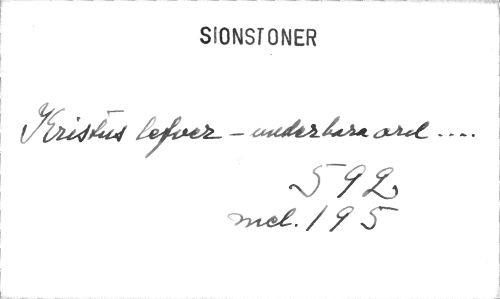 SIONSTONER
Kristus lefver - underbara ord ....
592
mel. 195